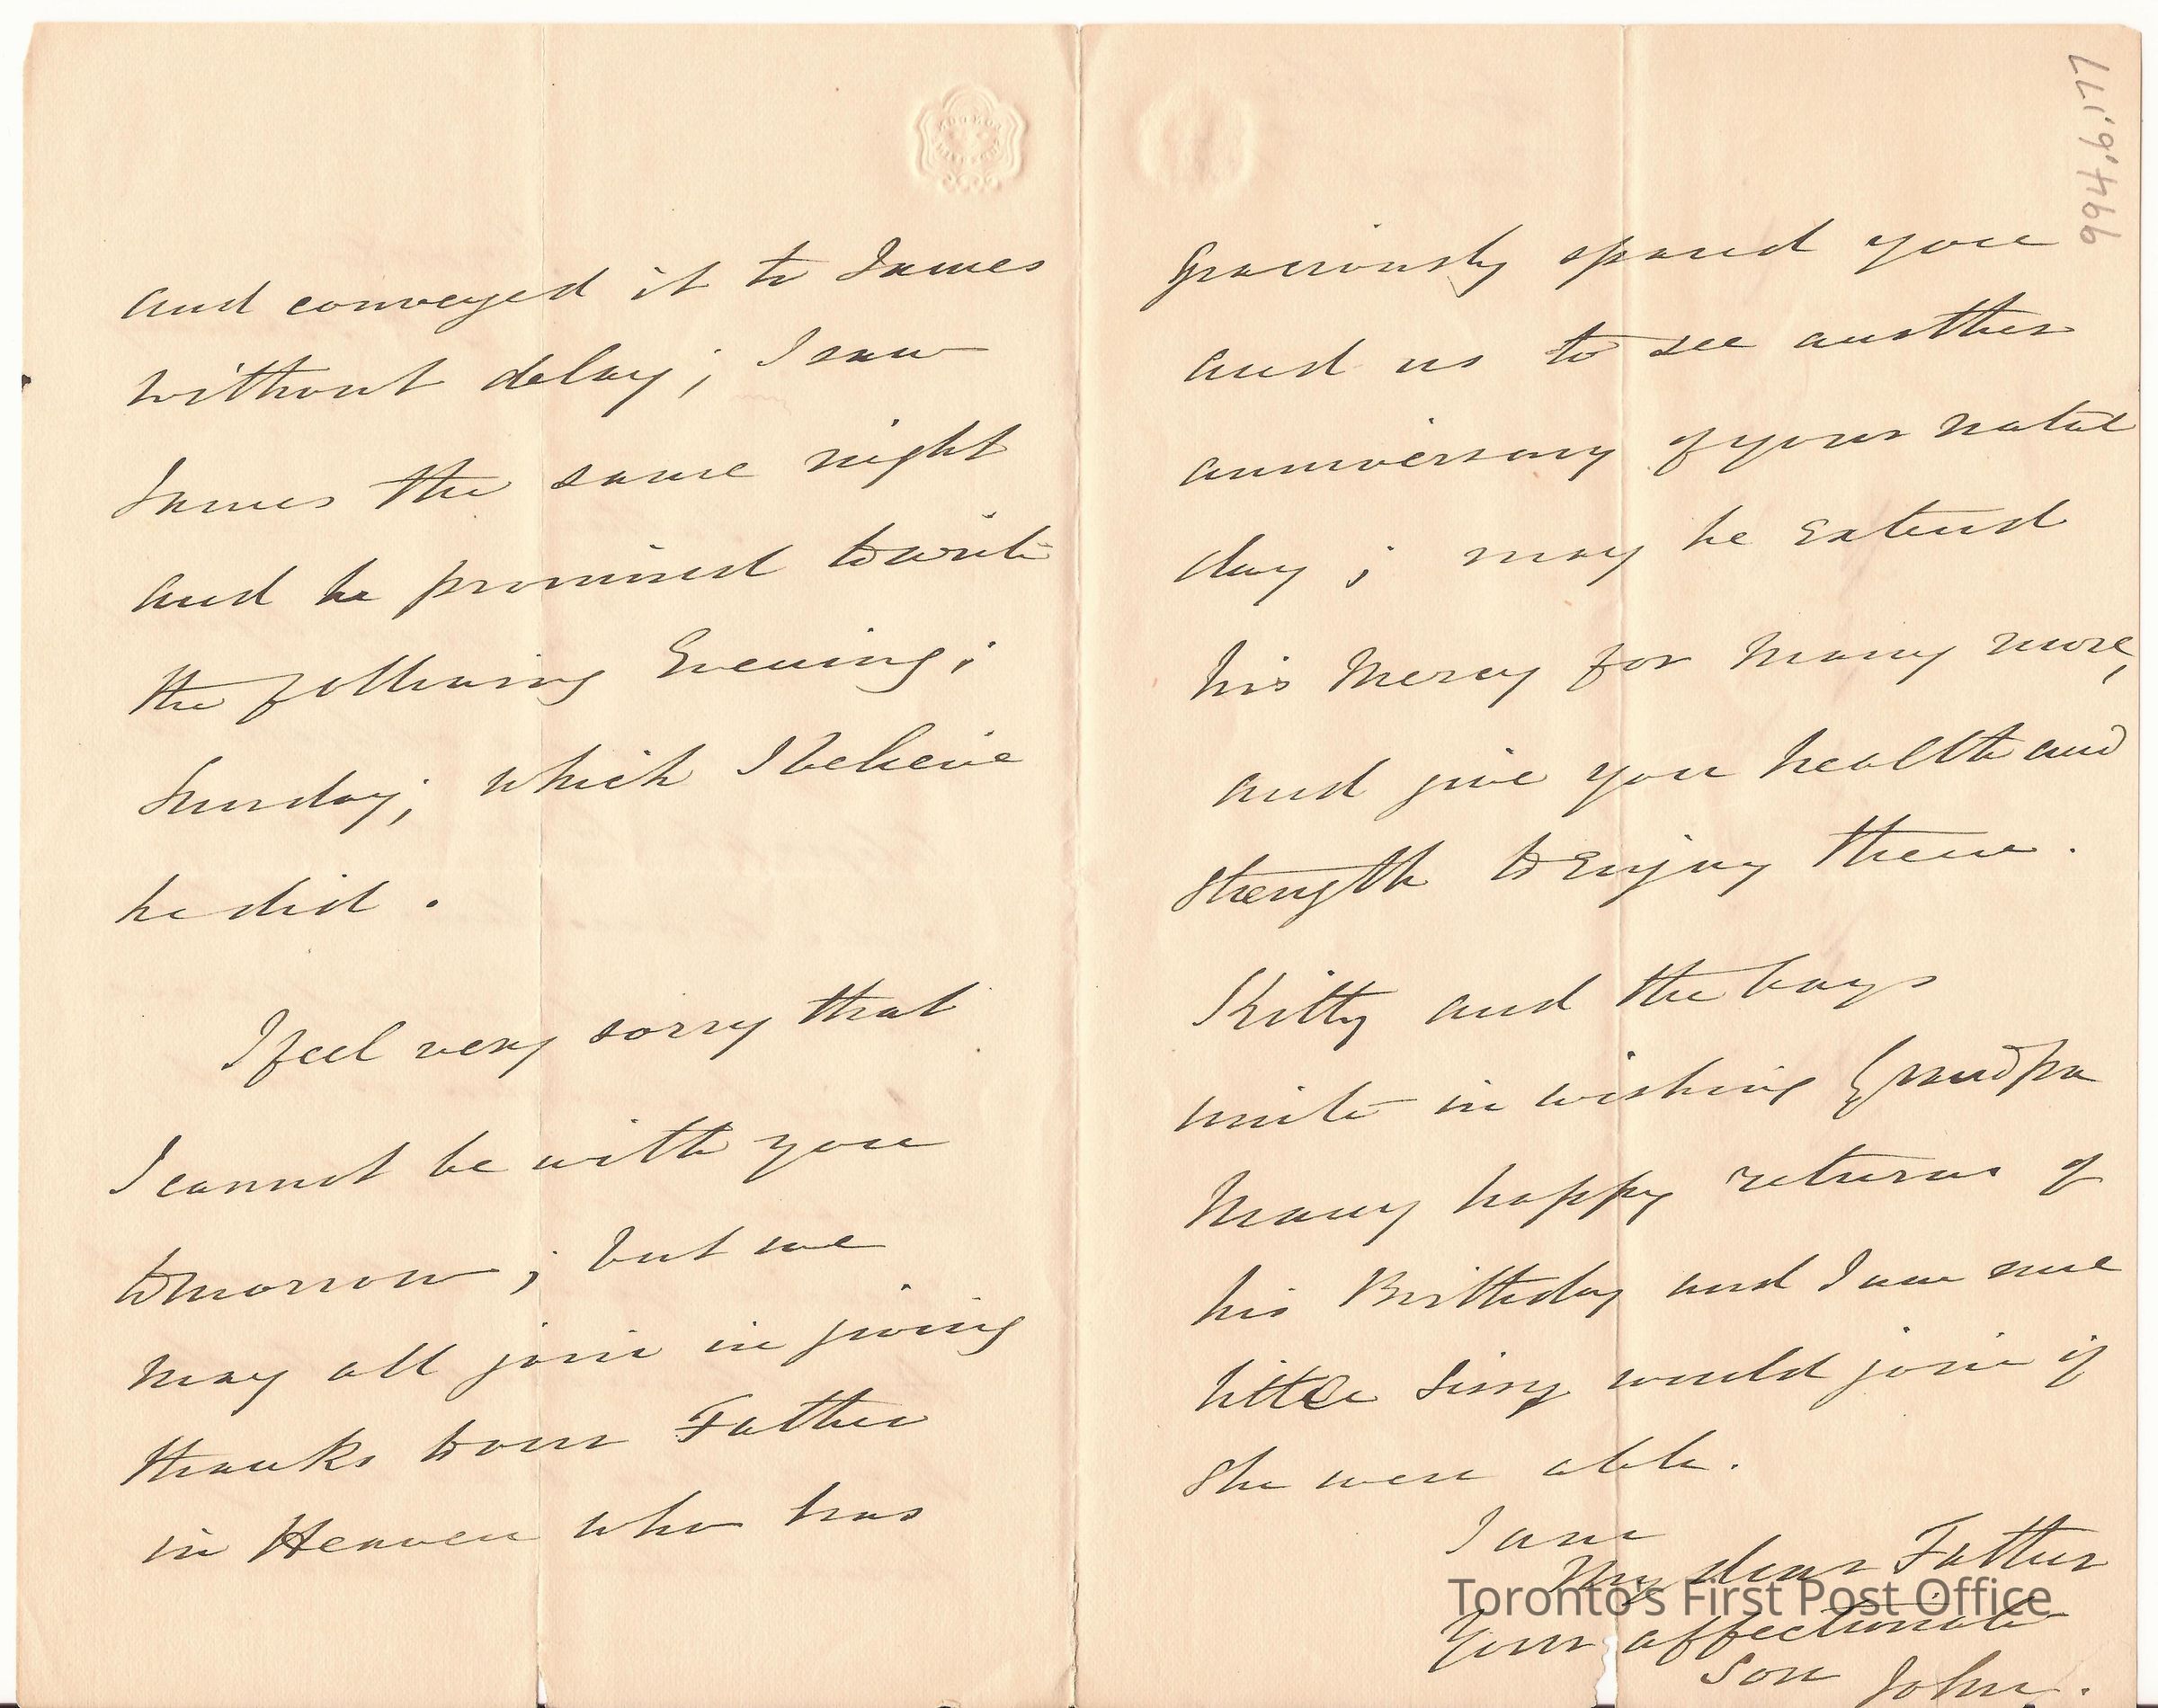 and conveyed it to James
without delay; I saw
James the same night
and he promised to write
the following Evening;
Sunday; which I believe
he did.
I feel very sorry that
I cannot be with you
tomorrow; but we
may all join in giving
thanks to our Father
in Heaven who has
994.6.177
Graciously spared you
and us to see another
anniversary of your natal
day; may he Extend
his Mercy for Many more,
and give you health and
strength to Enjoy them.
Kitty and the boys
unite in wishing Grandpa
Many happy returns of
his Birthday and I am sure
little Sissy would join if
she were able.
I am
My dear Father
Your affectionate
Son John.
Toronto's First Post Office